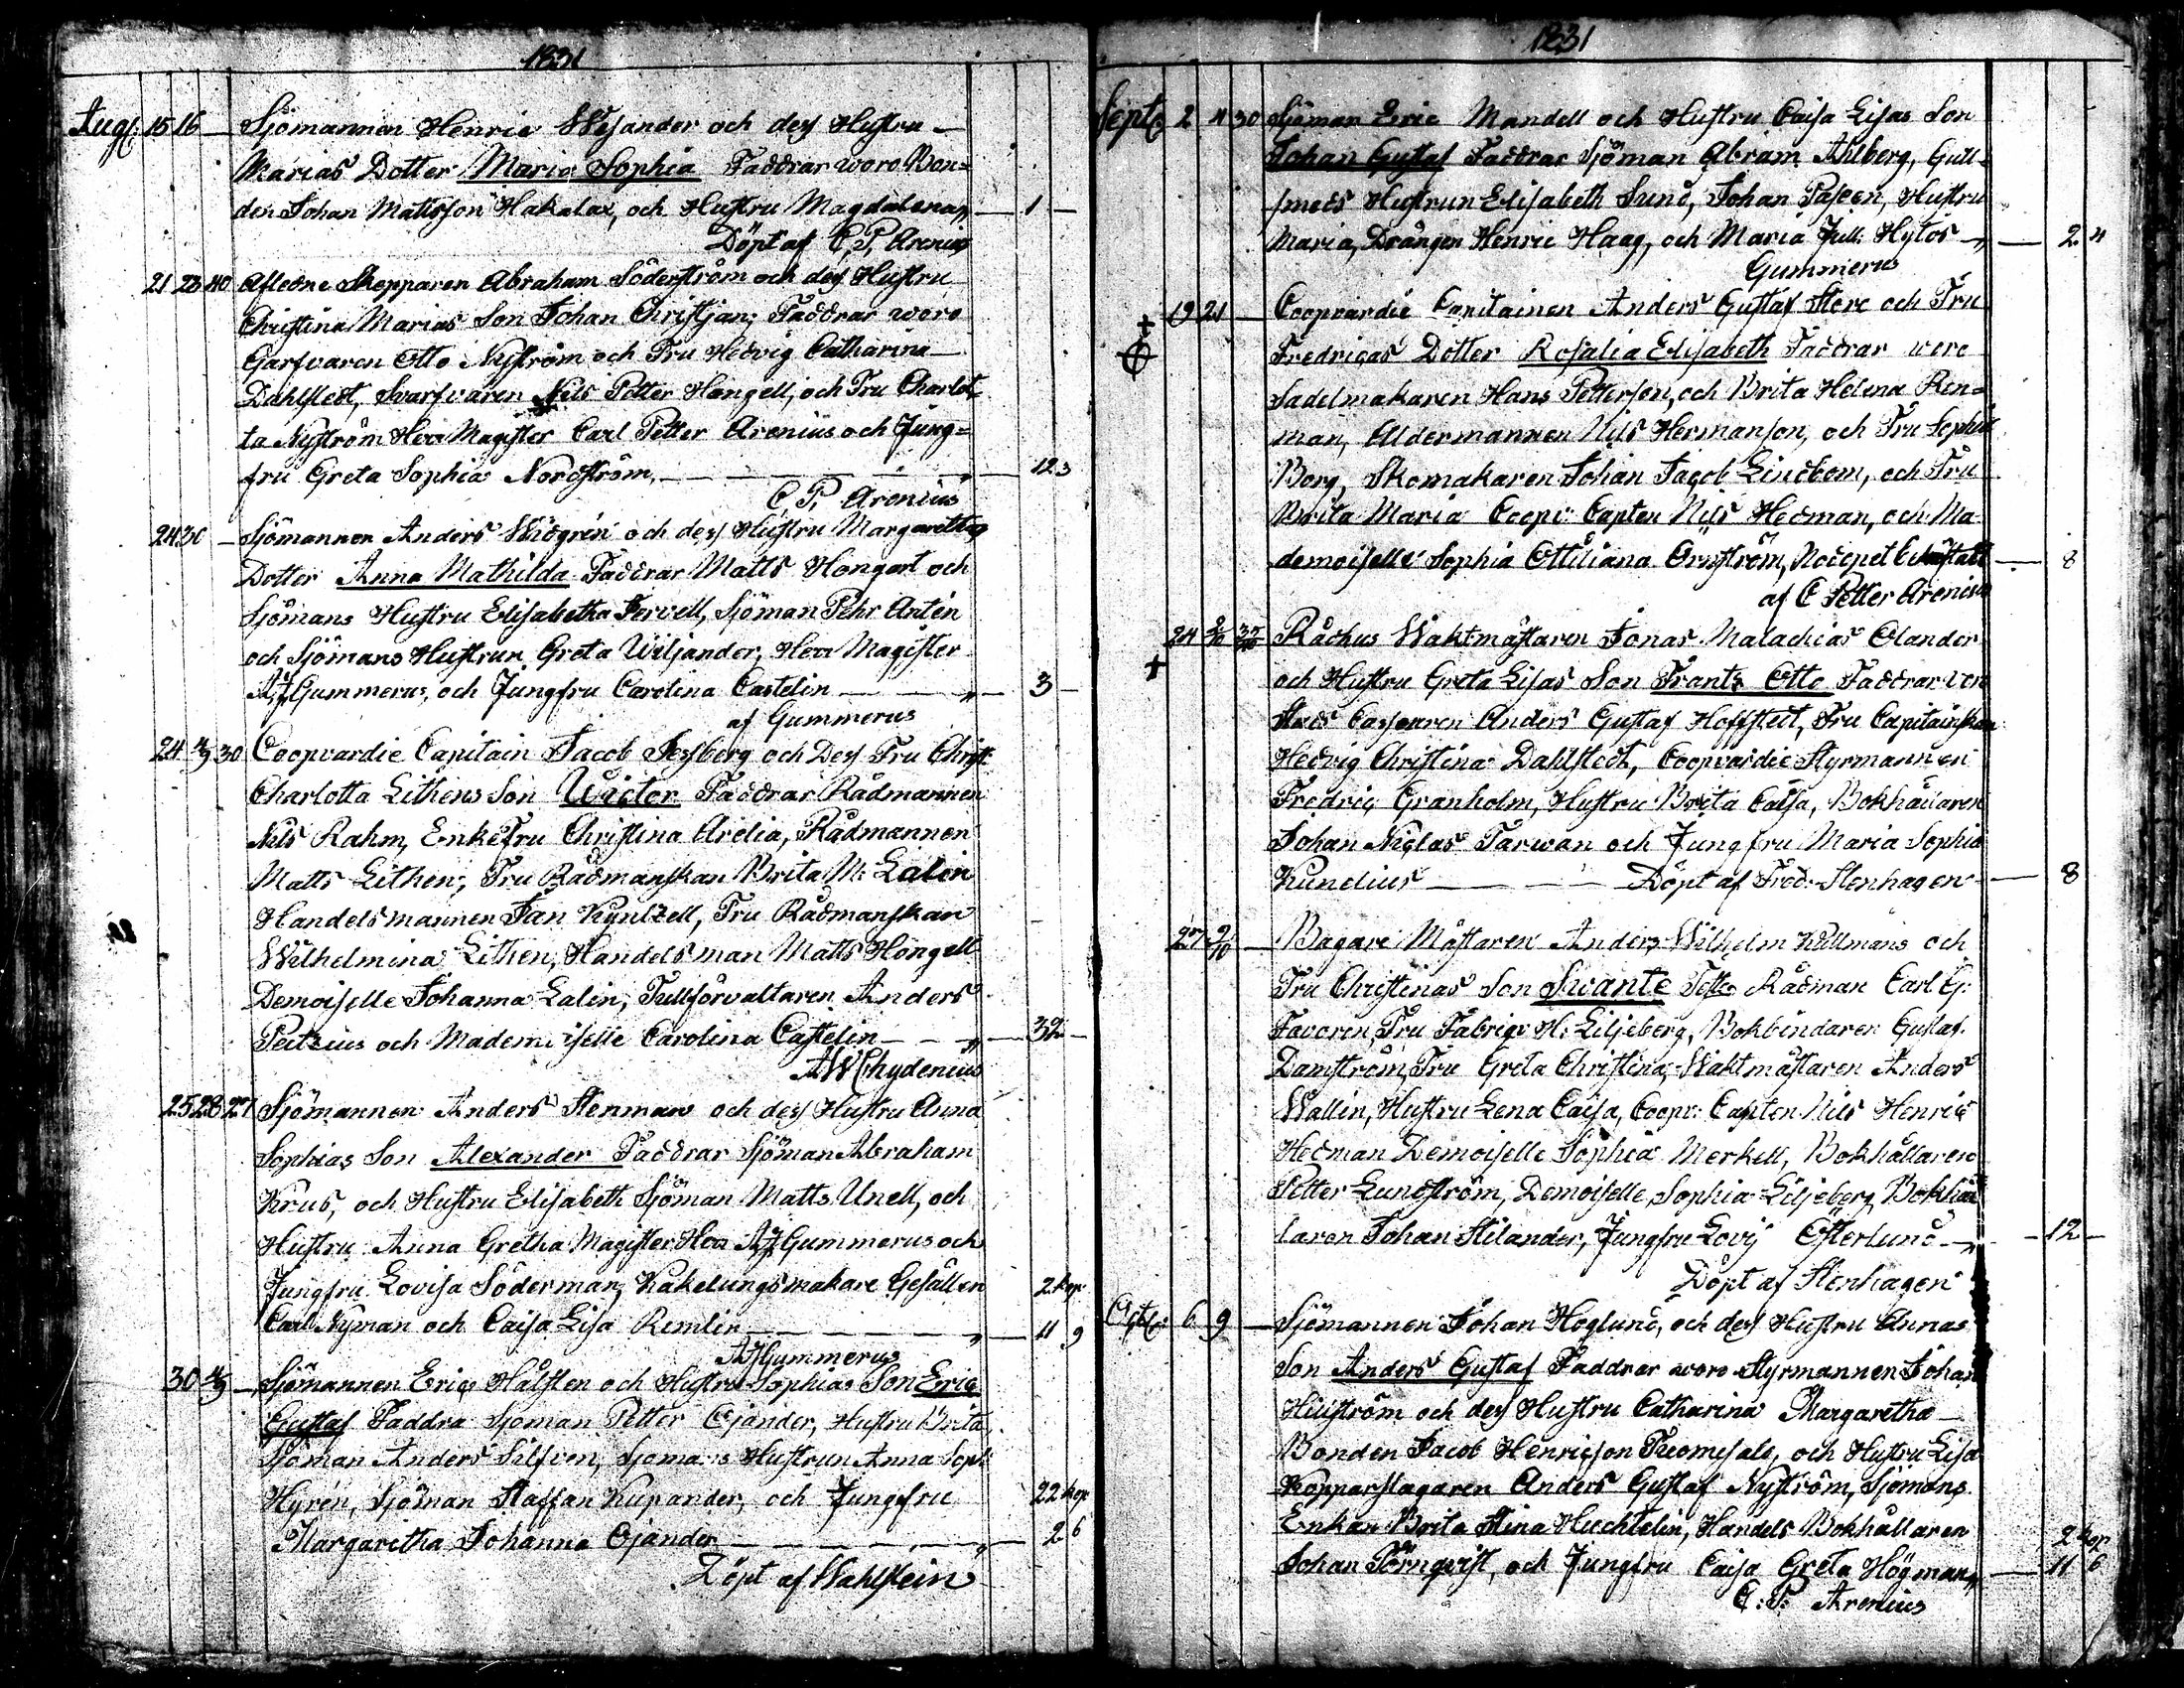 1831
Augs: 15 16 — Sjömannen Henric Wesander och dess Hustru —
Marias Dotter Maria Sophia Faddrar woro Bon=
den Johan Mattsson Hakalax, och Hustru Magdalena, — 1 —
Döpt af C. P. Arenius
21 23 40 Afledne Skepparen Abraham Söderström och dess Hustru
Christina Marias Son Johan Christjan; Faddrar woro
Garfvaren Otto Nyström och Fru Hedvig Catharina —
Dahlstedt, Svarfvaren Nils Petter Hongell, och Fru Charlot=
ta Nyström Herr Magister Carl Petter Arenius och Jung=
fru Greta Sophia Nordström, — 12 3
C. P. Arenius
24 30 — Sjömannen Anders Widgrén och dess Hustru Margarethas
Dotter Anna Mathilda Faddrar Matts Hongart och
Sjömans Hustru Elisabetha Fervell, Sjöman Pehr Antén
och Sjömans Hustrun Greta Wiljander, Herr Magister
A J Gummerus, och Jungfru Carolina Castelin — 3 —
af Gummerus
24 4/9 30 Coopvardie Capitain Jacob Jessberg och Dess Fru Christ:
Charlotta Lithens Son Wictor Faddrar Rådmannen
Nils Rahm, EnkeFru Christina Arelia, Rådmannen
Matts Lithen, Fru Rådmanskan Brita M. Lalin
Handelsmannen Jan Kyntzell, Fru Rådmanskan
Wilhelmina Lithen, Handelsman Matts Hongell
Demoiselle Johanna Lalin, Tullförvaltaren Anders
Peitzius och Mademoiselle Carolina Castelin — 32 —
A W Chydenius
25 28 27 Sjömannen Anders Stenman och dess Hustru Anna
Sophias Son Alexander Faddrar Sjöman Abraham
Krus, och Hustru Elisabeth Sjöman Matts Unell, och
Hustru Anna Gretha Magister Herr A J Gummerus och
Jungfru Lovisa Söderman, Kakelungsmakare Gesällen 2 kop
Carl Nyman och Caisa Lisa Remlin — 11 9
A J Gummerus
30 4/9 — Sjömannen Eric Hålsten och Hustru Sophias Son Eric
Gustaf Faddra Sjöman Petter Ojander, Hustru Brita,
Sjöman Anders Silfven, Sjomans Hustrun Anna Soph:
Hyrén, Sjöman Staffan Kupander, och Jungfru 22 kop
Margaretha Johanna Ojander — 2 6
Döpt af Wahlstein
1831
Septe 2 4 30 Sjöman Eric Mandell och Hustru Caisa Lisas Son
Johan Gustaf Faddrar Sjöman Abram Ahlberg, Gull=
smeds Hustrun Elisabeth Sund, Johan Passen, Hustru
Maria, Drängen Henric Haag, och Maria Jull: Hytös — 2 4
Gummerus
19 21 — Coopvardie Capitainen Anders Gustaf Store och Fru
Fredricas Dotter Rosalia Elisabeth Faddrar woro
Sadelmakaren Hans Petterson, och Brita Helena Ren=
man, Aldermannen Nils Hermanson, och Fru Sophia
Borg, Skomakaren Johan Jacob Lindbom, och Fru
Brita Maria Coopv: Capten Nils Hedman, och Ma
demoiselle Sophia Ottiliana Örnström, Nödepet — 8
af C Petter Arenius
24 2/10 35/40 Rådhus Waktmästaren Jonas Malachias Olander
och Hustru Greta Lisas Son Frants Otto Faddrar voro
Stads Cassearen Anders Gustaf Hoffstedt, Fru Capitainskan
Hedvig Christina Dahlstedt, Coopvardie Styrmannen
Fredric Granholm, Hustru Brita Caisa, Bokhållaren
Johan Niclas Tarwan och Jungfru Maria Sophia
Kunelius — Döpt af Fred: Stenhagen — 8
27 9/10 — Bagare Mästaren Anders Wilhelm Kullmans och
Fru Christinas Son Swante Test: Rådman Carl G:
Favoren, Fru Fabriqv: H: Liljeberg, Bokbindaren Gustaf
Damström, Fru Greta Christina, Waktmästaren Anders
Wallin, Hustru Lena Caisa, Coopv: Capten Nils Henric
Hedman Demoiselle Sophia Merkell, Bokhållaren
Petter Lundström, Demoiselle Sophia Liljeberg, Bokhål
laren Johan Stilander, Jungfru Lovis Österlund — 12 —
Döpt af Stenhagen
Octe: 6 9 — Sjömannen Johan Hoglund, och dess Hustru Annas
Son Anders Gustaf Faddrar woro Styrmannen Johan
Hillström och dess Hustru Catharina Margaretha —
Bonden Jacob Henricson Tuomisalo, och Hustru Lisa
Kopparslagaren Anders Gustaf Nyström, Sjömans
Enkan Brita Stina Huchtelin, Handels Bokhållaren 2 kop
Johan Törnqvist, och Jungfru Caisa Greta Högman, — 11 6
C: P: Arenius